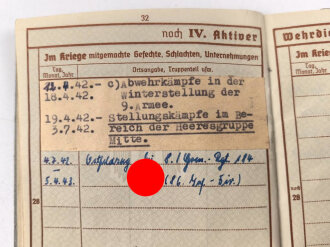 32
noch IV. Aktiver
Wehrdie
Im Kriege mitgemachte Gefechte, Schlachten, Unternehmungen
Im
Tag, Monat, Jahr
Ortsangabe, Truppenteil usw.
Tag, Monat, Jahr
.4.42.- c)Abwehrkämpfe in der
18.4.42. Winterstellung der
9.Armee.
19.4.42.- Stellungskämpfe im Be-
3.7.42. reich der Heeresgruppe
Mitte.
4.7.42. - 184
5.4.43. (86. Inf.-Div.)
28
28